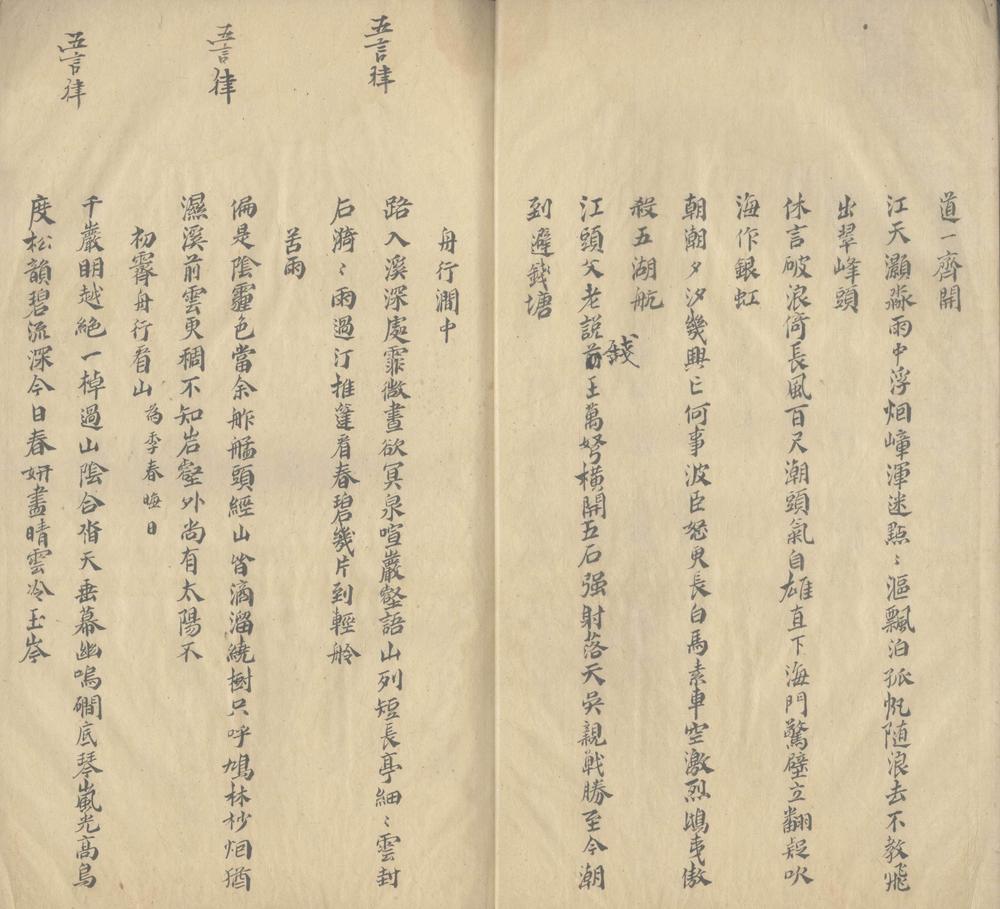 道一齊開
江天灝淼雨中浮烟嶂渾迷點〻漚飄泊孤帆随浪去不教飛
出翠峰頭
休言破浪倚長風百尺潮頭氣自雄直下海門驚壁立翻疑吹
海作銀虹
朝潮夕汐幾興亡何事波臣怒更長白馬素車空激烈鴟夷傲
殺五湖航
江頭父老說前王萬弩橫開五石强射落天吳親戰勝至今潮
錢
到避錢塘
五言律
舟行澗中
路入溪深處霏微晝欲冥泉喧巖壑語山列短長亭細〻雲封
石漪〻雨過汀推篷看春碧幾片到輕舲
五言律
苦雨
偏是陰霾色當余舴艋頭經山皆滴溜繞樹只呼鳩林杪烟猶
濕溪前雲更稠不知岩壑外尚有太陽不
五言律
初霽舟行看山為季春晦日
千巖明越絕一棹過山陰合沓天垂幕幽鳴磵底琴嵐光高鳥
度松韻碧流深今日春妍盡晴雲冷玉岑